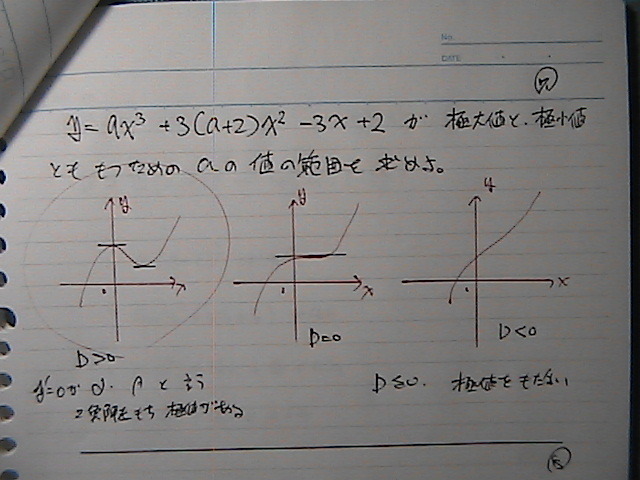 No.
DATE
問
y = ax³ + 3(a+2)x² - 3x + 2 が 極大値と、極小値
とも もつための aの 値の範囲を 求めよ。
y
y
y
x
x
x
D>0
D=0
D<0
y'=0が α、β と言う
2実解をもち 極値がある
D≤0. 極値をもたない